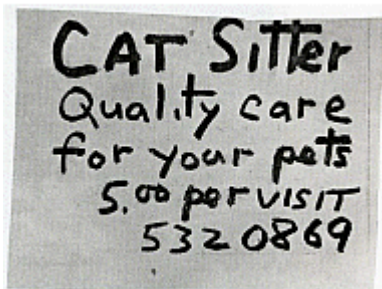 CAT Sitter
Quality care
for your pets
5.00 per VISIT
532 0869